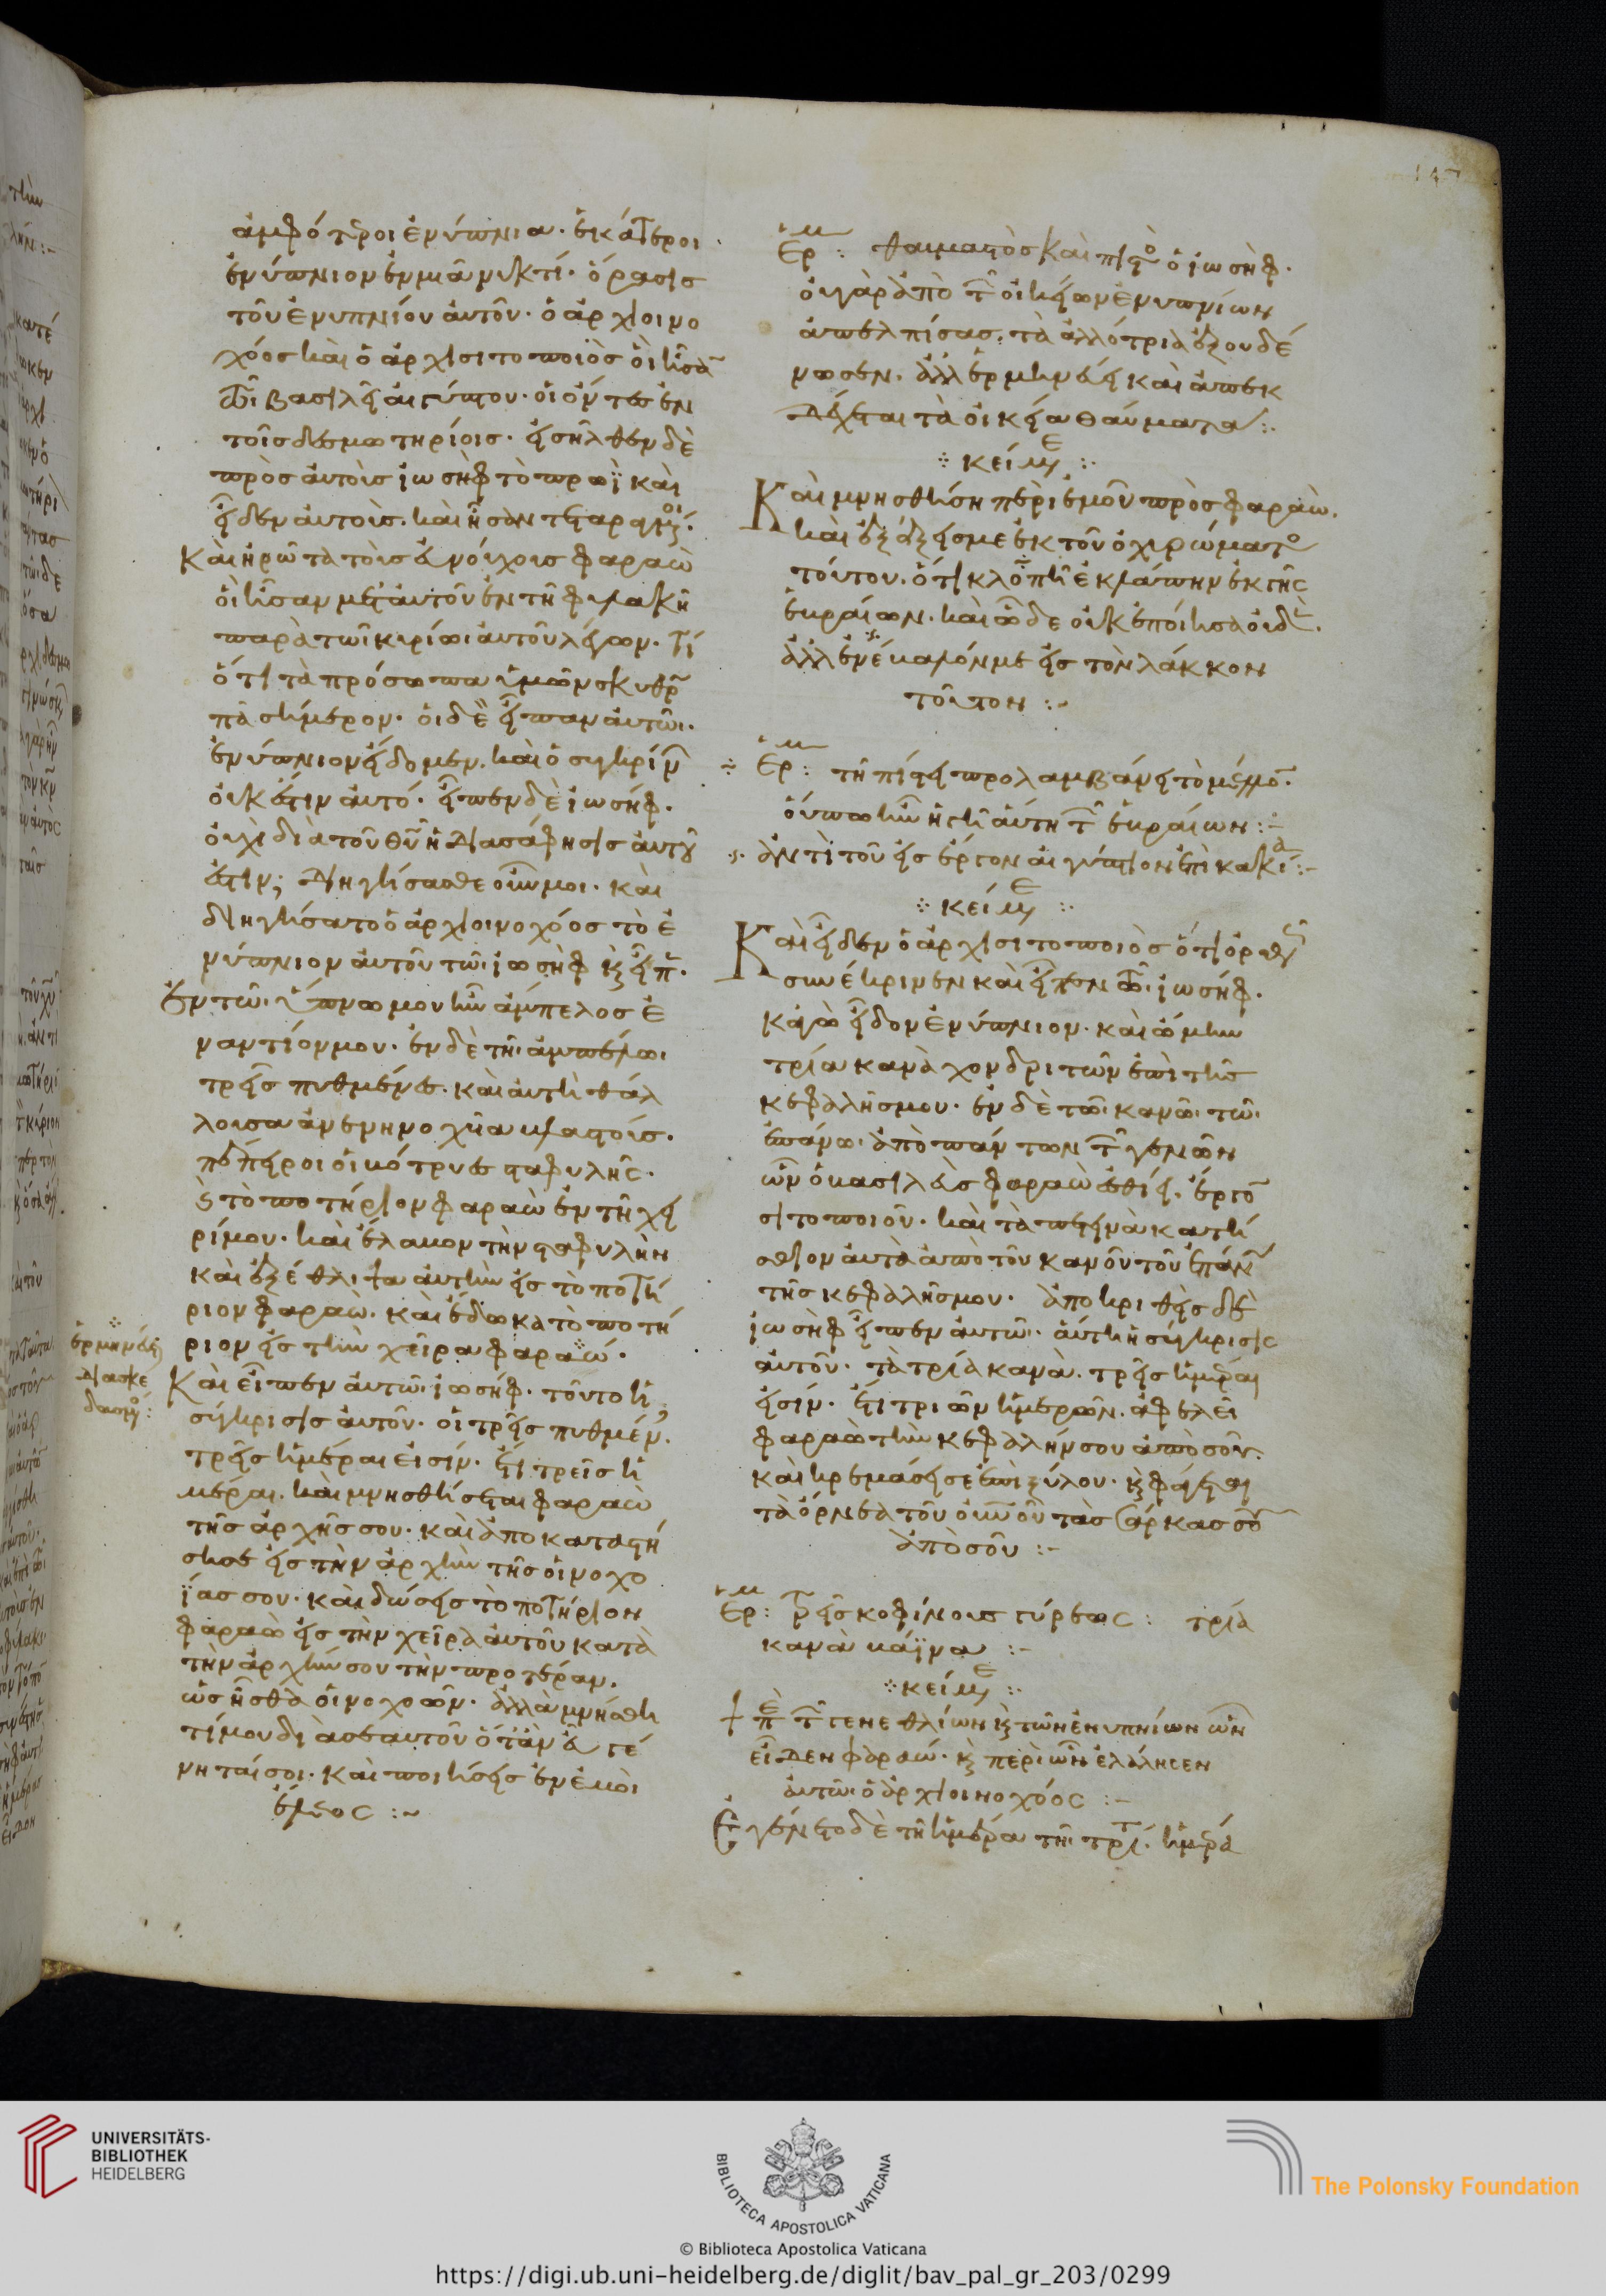 ἀμφότεροι ἐνύπνια· ἑκάτεροι
ἐνύπνιον ἐν μιᾶ νυκτί· ὅρασις
τοῦ ἐνυπνίου αὐτοῦ· ὁ ἀρχιοινο
χόος καὶ ὁ ἀρχισιτοποιὸς οἱ ἦσα
τῶ βασιλεῖ αἰγύπτου· οἱ ὄντες ἐν
τοῖς δεσμωτηρίοις· εἰσῆλθεν δὲ
πρὸς αὐτοὺς ἰωσὴφ τὸ πρωῒ καὶ
εἶδεν αὐτοὺς· καὶ ἦσαν τεταραγμένοι·
Καὶ ἠρώτα τοὺς εὐνούχους φαραὼ
οἱ ἦσαν μετ' αὐτοῦ ἐν τῆ φυλακῆ
παρὰ τῶι κυρίωι αὐτοῦ λέγων· τί
ὅτι τὰ πρόσωπα ὑμῶν σκυθρ
πὰ σήμερον· οἱ δὲ εἶπαν αὐτῶι·
ἐνύπνιον εἴδομεν· καὶ ὁ συγκρίν
οὐκ ἔστιν αὐτό· εἶπεν δὲ ἰωσήφ·
οὐχὶ διὰ τοῦ θυ ἡ διασάφησις αὐτοῦ
ἐστιν; διηγήσασθε οὖν μοι· καὶ
διηγήσατο ὁ ἀρχιοινοχόος τὸ ἐ
νύπνιον αὐτοῦ τῶι ἰωσὴφ κ εἶπ·
Ἐν τῶι ὕπνω μου ἦν ἄμπελος ἐ
ναντίον μου· ἐν δὲ τῆι ἀμπέλωι
τρεῖς πυθμένες· καὶ αὐτὴ θάλ
λουσα ἀνενηνοχυῖα βλαστούς·
πέπειροι οἱ βότρυες σταφυλῆς·
κ τὸ ποτήριον φαραὼ ἐν τῆ χει
ρί μου· καὶ ἔλαβον τὴν σταφυλὴν
καὶ ἐξέθλιψα αὐτὴν εἰς τὸ ποτή
ριον φαραὼ· καὶ ἔδωκα τὸ ποτή
ριον εἰς τὴν χεῖρα φαραώ·
ἑρμηνεία
διασκε
δασμοῦ:
Καὶ εἶπεν αὐτῶι ἰωσήφ· τοῦτο ἡ
σύγκρισις αὐτοῦ· οἱ τρεῖς πυθμέν·
τρεῖς ἡμέραι εἰσίν· ἔτι τρεῖς ἡ
μέραι· καὶ μνησθήσεται φαραὼ
τῆς ἀρχῆς σου· καὶ ἀποκαταστή
σει σε εἰς τὴν ἀρχὴν τῆς οἰνοχο
ΐας σου· καὶ δώσεις τὸ ποτήριον
φαραὼ εἰς τὴν χεῖρα αὐτοῦ κατὰ
τὴν ἀρχήν σου τὴν προτέραν·
ὡς ἦσθα οἰνοχοῶν· ἀλλὰ μνήσθη
τί μου διὰ σεαυτοῦ ὅταν εὖ γέ
νηταί σοι· καὶ ποιήσεις ἐν ἐμοὶ
ἔλεος :~
Ἑρμ: θαυμαστὸς καὶ πιστὸ ὁ ἰωσὴφ·
οὐ γὰρ ἀπὸ τῶν οἰκείων ἐνυπνίων
ἀπελπίσας· τὰ ἀλλότρια ἐξουδέ
νωσεν· ἀλλ' ἑρμηνεύει καὶ ἀπεκ
δέχεται τὰ οἰκεῖα θαύματα :·
κείμε
Καὶ μνησθήση περὶ ἐμοῦ πρὸς φαραὼ·
καὶ ἐξάξεις με ἐκ τοῦ ὀχυρώματο
τούτου· ὅτι κλοπῆ ἐκλάπην ἐκ γῆς
ἑβραίων· καὶ ὧδε οὐκ ἐποίησα οὐδὲ·
ἀλλ' ἐνέβαλόν με εἰς τὸν λάκκον
τοῦτον :~
Ἑρμ: τῆ πίστει προλαμβάνει τὸ μέλλο·
οὔπω ἦν ἡ γῆ αὕτη τῶν ἑβραίων :~
ἀντὶ τοῦ εἰς ἔργον αἰγύπτιον
κείμε
Καὶ εἶδεν ὁ ἀρχισιτοποιὸς ὅτι ὀρθῶς
συνέκρινεν καὶ εἶπεν τῶ ἰωσήφ·
κἀγὼ εἶδον ἐνύπνιον· καὶ ὤμην
τρία κανὰ χονδριτῶν ἐπὶ τῆς
κεφαλῆς μου· ἐν δὲ τῶι κανῶι τῶι
ἐπάνω· ἀπὸ πάντων τῶν γενῶν
ὧν ὁ βασιλεὺς φαραὼ ἐσθίει· ἔργο
σιτοποιοῦ· καὶ τὰ πετεινὰ κατή
σθιον αὐτὰ ἀπὸ τοῦ κανοῦ τοῦ ἐπάνω
τῆς κεφαλῆς μου· ἀποκριθεὶς δὲ
ἰωσὴφ εἶπεν αὐτῶι· αὕτη ἡ σύγκρισις
αὐτοῦ· τὰ τρία κανὰ· τρεῖς ἡμέραι
εἰσίν· ἔτι τριῶν ἡμερῶν· ἀφελεῖ
φαραὼ τὴν κεφαλήν σου ἀπὸ σοῦ·
καὶ κρεμάσει σε ἐπὶ ξύλου· κ φάγεται
τὰ ὄρνεα τοῦ οὐνοῦ τὰς σάρκας σου
ἀπὸ σοῦ :~
Ἑρμ: τρεῖς κοφίνους γύρεως : τρία
κανὰ βάϊνα :~
κείμε
ἐπ τῶν γενεθλίων κ τῶν ἐνυπνίων ὧν
εἶδεν φαραώ· κ περὶ ὧν ἐλάλησεν
αὐτῶι ὁ ἀρχιοινοχόος :~
Ἐγένετο δὲ τῆ ἡμέρα τῆι τρίτ· ἡμέρα
UNIVERSITÄTS-
BIBLIOTHEK
HEIDELBERG
BIBLIOTECA APOSTOLICA VATICANA
The Polonsky Foundation
© Biblioteca Apostolica Vaticana
https://digi.ub.uni-heidelberg.de/diglit/bav_pal_gr_203/0299